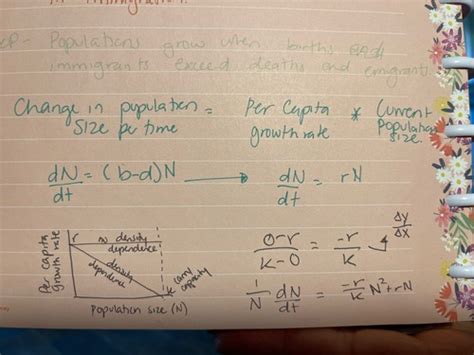 Populations grow when births and
immigrants exceed deaths and emigrants.
Change in population size per time = Per Capita growth rate * Current Population size.
dN/dt = (b-d)N → dN/dt = rN
Δy/Δx
0-r/k-0 = -r/k
1/N dN/dt = -r/k N²+rN
Per capita growth rate
r no density dependence
density dependence
k carry capacity
Population size (N)